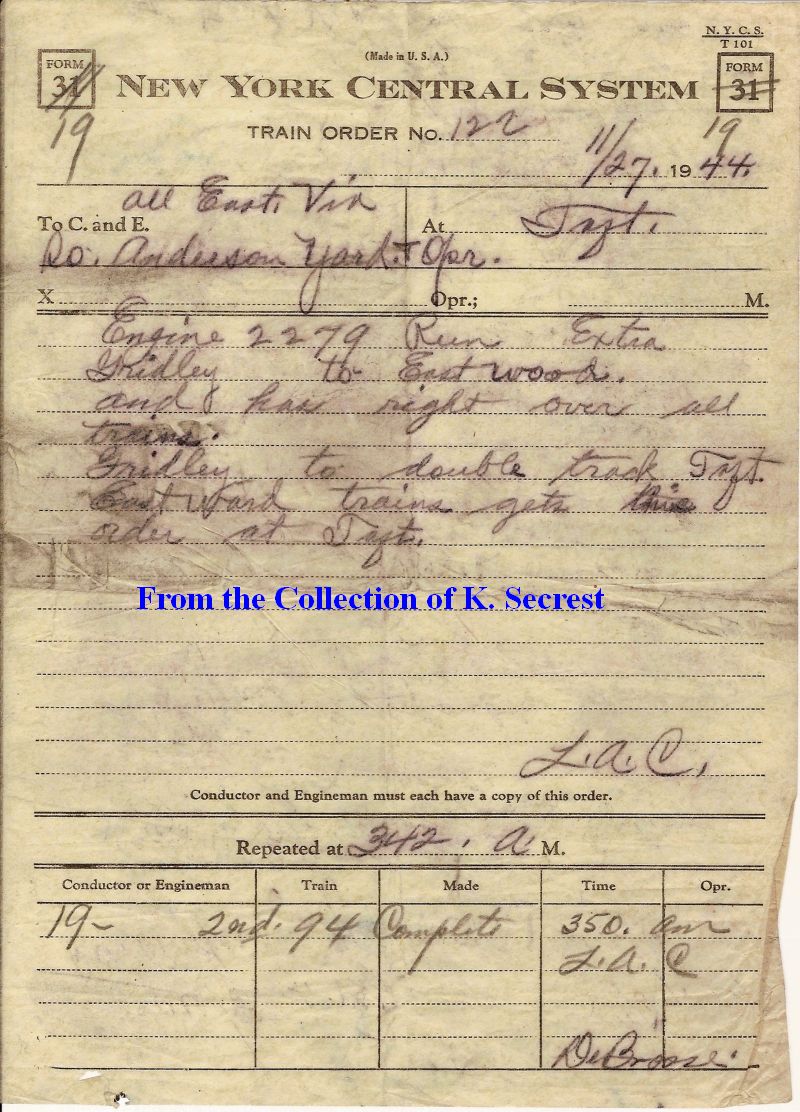 N. Y. C. S.
T 101
(Made in U. S. A.)
FORM 31 NEW YORK CENTRAL SYSTEM FORM 31
19 TRAIN ORDER No. 122 19
11/27. 1944.
all East. Via
To C. and E. At Taft.
So. Anderson Yard. + Opr.
X Opr.; M.
Engine 2279 Run Extra
Gridley to Eastwood.
and has right over all
trains.
Gridley to double track Taft.
East Ward trains gets this
order at Taft.
From the Collection of K. Secrest
L. A. C.
Conductor and Engineman must each have a copy of this order.
Repeated at 342. A M.
Conductor or Engineman Train Made Time Opr.
19- 2nd. 94 Complete 350. am
L. A. C